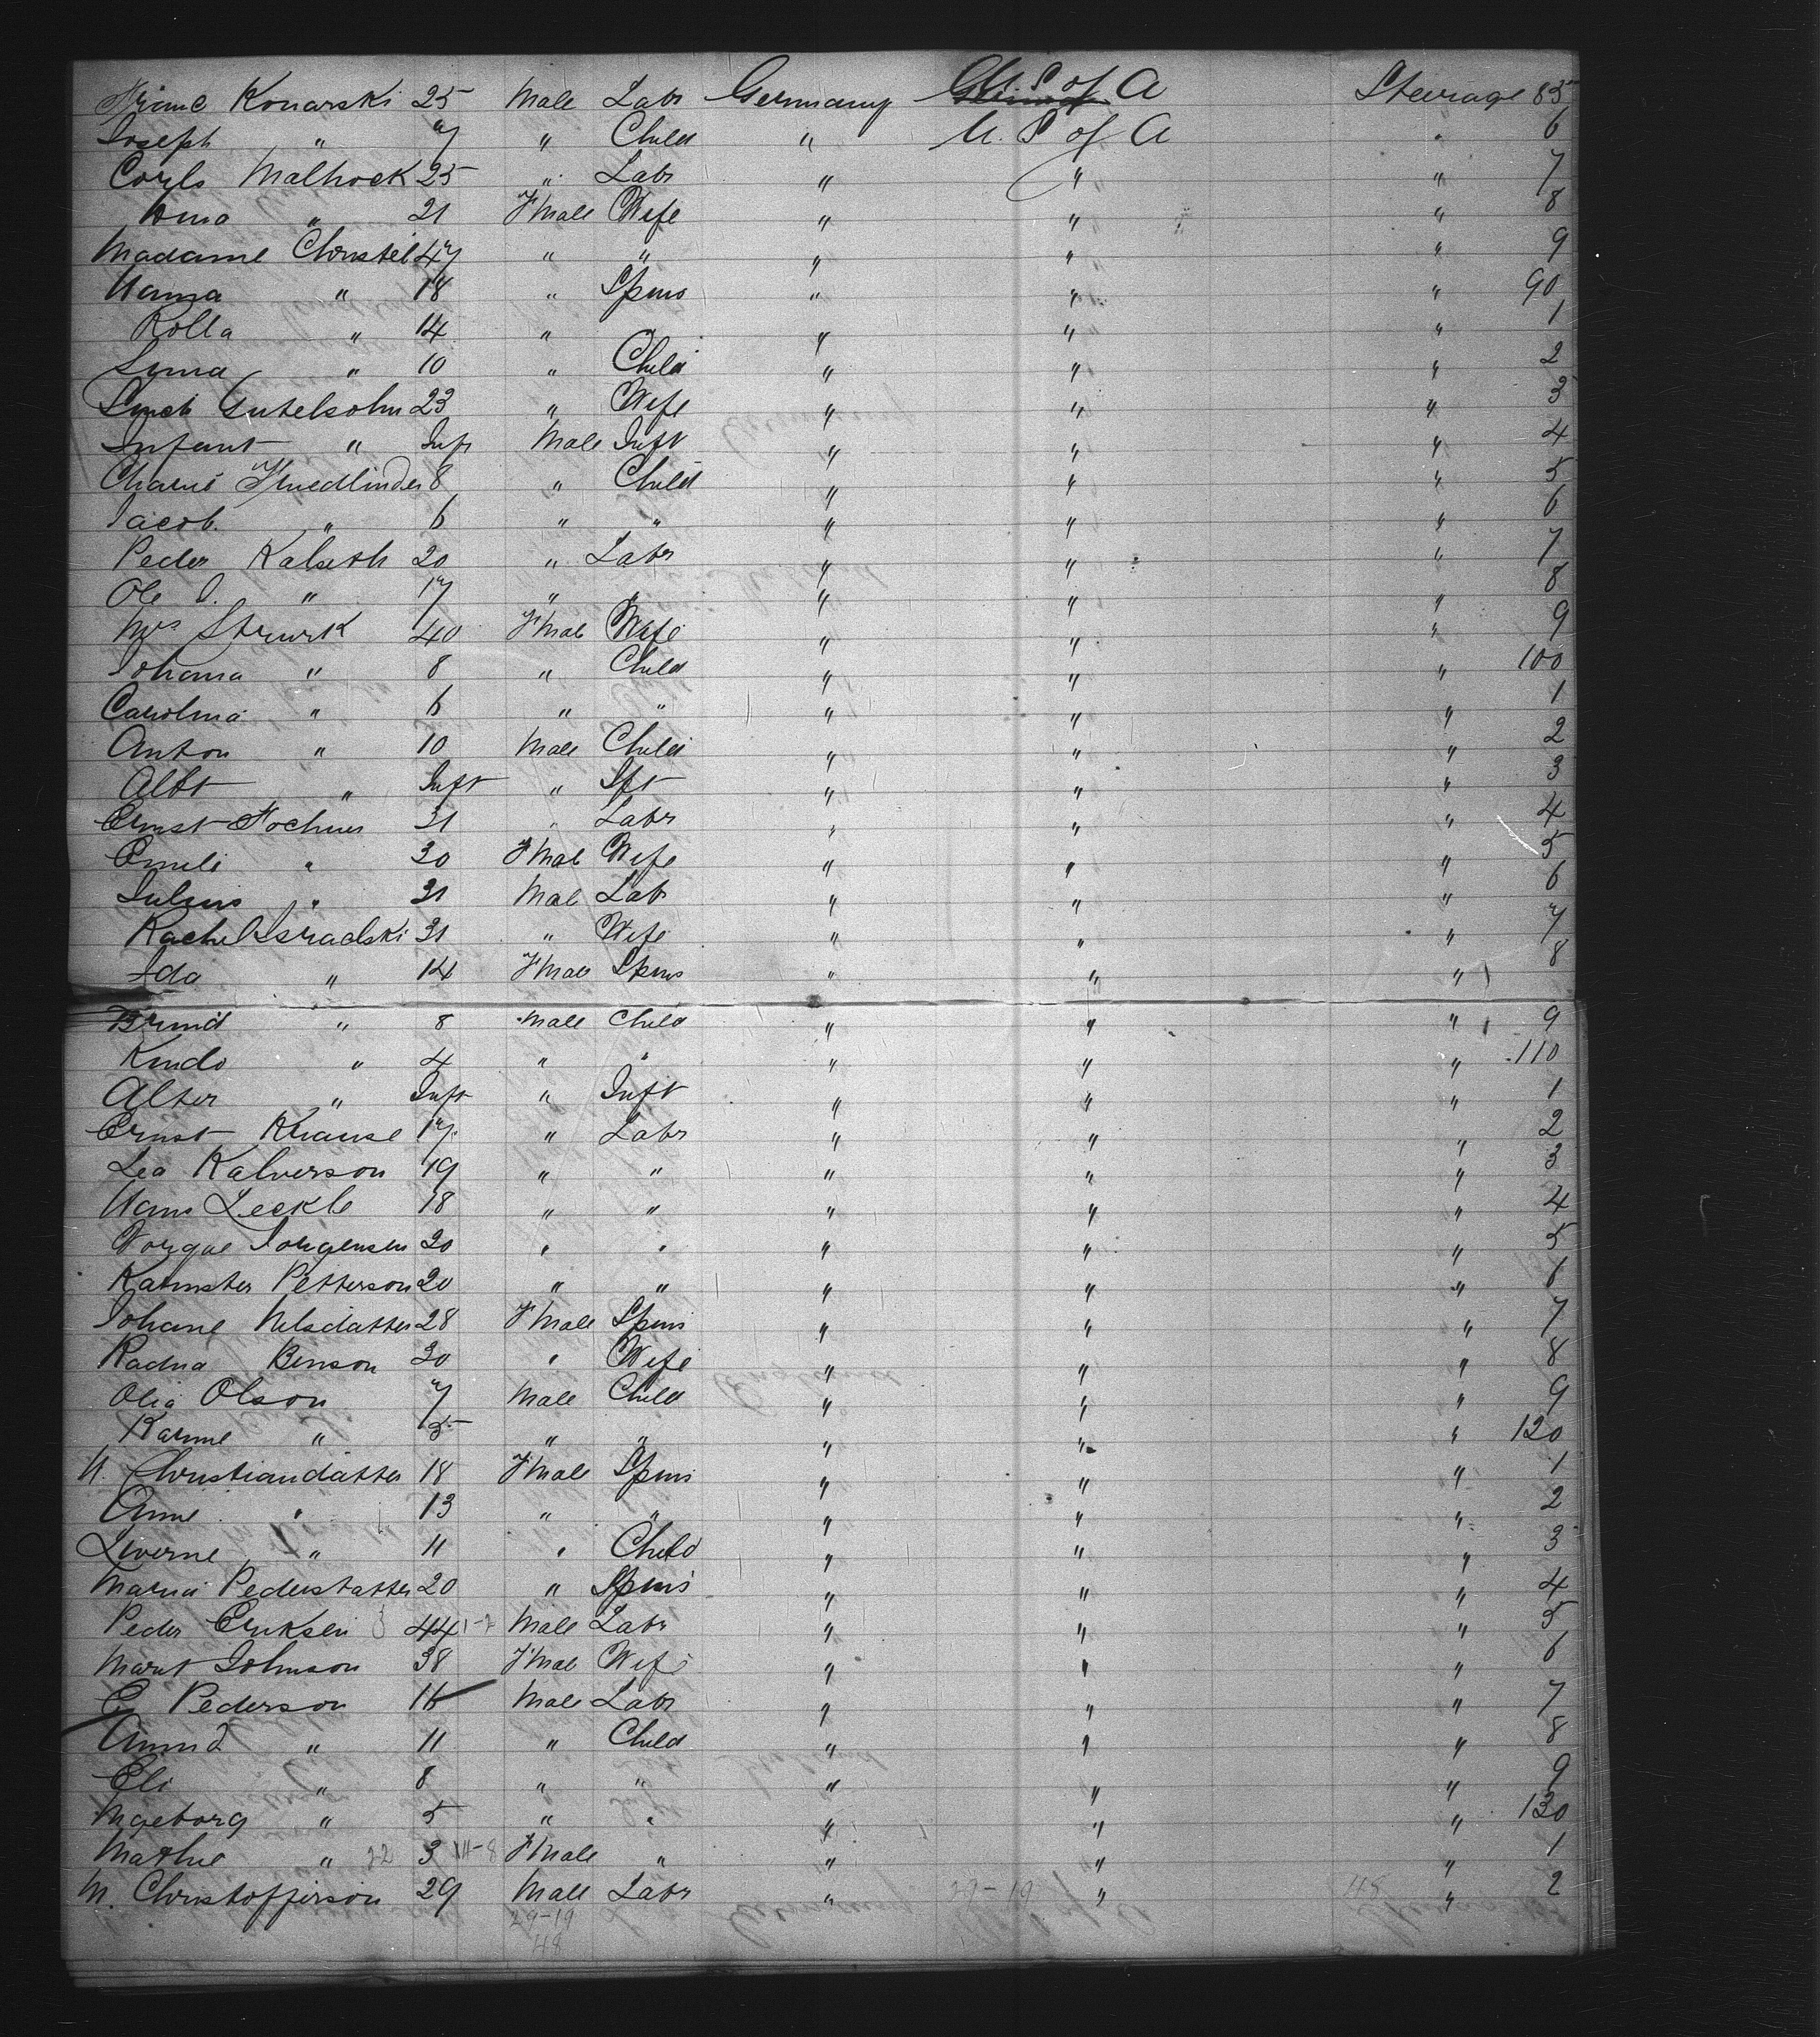 Konarski 25 Male Labr Germany U S of A Steerage 85
Joseph " 7 " Child " U. S of A " 6
Corls Malhock 25 " Labr " " " 7
" 21 Fmale Wife " " " 8
Madame Christel 47 " " " " " 9
Hanna " 18 " Spins " " " 90
Rolla " 14 " " " " 1
" 10 " Child " " " 2
Gutelsohn 23 " Wife " " " 3
Infant " Inft Male Inft " " " 4
8 " Child " " " 5
Jacob. " 6 " " " " " 6
Peder Kalseth 20 " Labr " " " 7
Ole J. " 17 " " " " " 8
Mrs Strurk 40 Fmal Wife " " " 9
Johana " 8 " Child " " " 100
Carolina " 6 " " " " " 1
Anton " 10 Male Child " " " 2
Albt " Inft " Ift " " " 3
Ernst 31 " Labr " " " 4
Emili " 30 Fmal Wife " " " 5
Julius " 31 Mal Labr " " " 6
Rachel Israelski 31 " Wife " " " 7
Ida " 14 Fmal Spins " " " 8
" 8 Male Child " " " 9
" 4 " " " " " 110
Alter " Inft " Inft " " " 1
Ernst Krause 17 " Labr " " " 2
Lea Kalverson 19 " " " " " 3
Hans Leckle 18 " " " " " 4
Jorgensen 20 " " " " " 5
Petterson 20 " " " " " 6
Johane Nelsdatter 28 Fmale Spins " " " 7
Radna Benson 30 " Wife " " " 8
Olia Olson 7 Male Child " " " 9
Karine " 5 " " " " " 120
N. Christiandatter 18 Fmale Spins " " " 1
Anne " 13 " " " " " 2
Liverne " 11 " Child " " " 3
Maria Pederstatter 20 " Spins " " " 4
Peder Eriksen 3 44 1-2 Male Labr " " " 5
Marit Johnson 38 Fmal Wife " " " 6
E Pederson 16 Male Labr " " " 7
Amund " 11 " Child " " " 8
Eli " 8 " " " " " 9
Ingeborg " 5 " " " " " 130
Mathie " 22 3 Fmale " " " " 1
M. Christofferson 29 Male Labr " 29-19 " 48 " 2
29-19
48